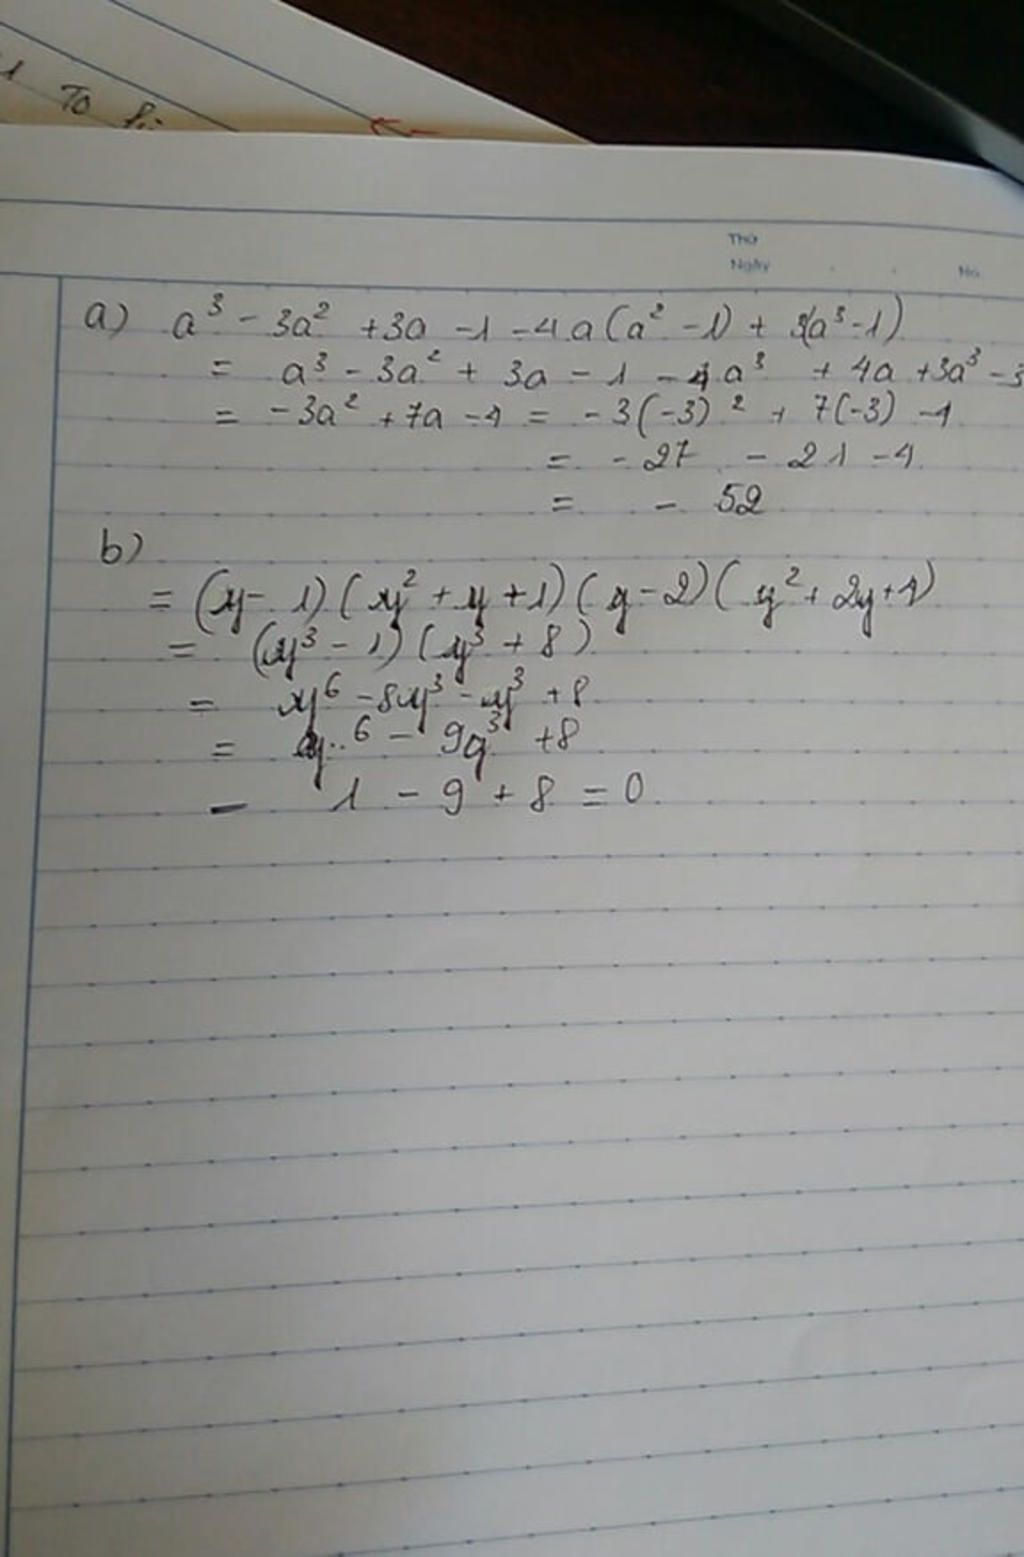 To
Thứ
Ngày
No.
a) a³ - 3a² + 3a - 1 - 4a(a² - 1) + 3(a³ - 1)
= a³ - 3a² + 3a - 1 - 4a³ + 4a + 3a³ - 3
= -3a² + 7a - 4 = -3(-3)² + 7(-3) - 4
= -27 - 21 - 4
= - 52
b)
= (y - 1)(y² + y + 1)(y - 2)(y² + 2y + 4)
= (y³ - 1)(y³ + 8)
= y⁶ - 8y³ - y³ + 8
= y⁶ - 9y³ + 8
- 1 - 9 + 8 = 0